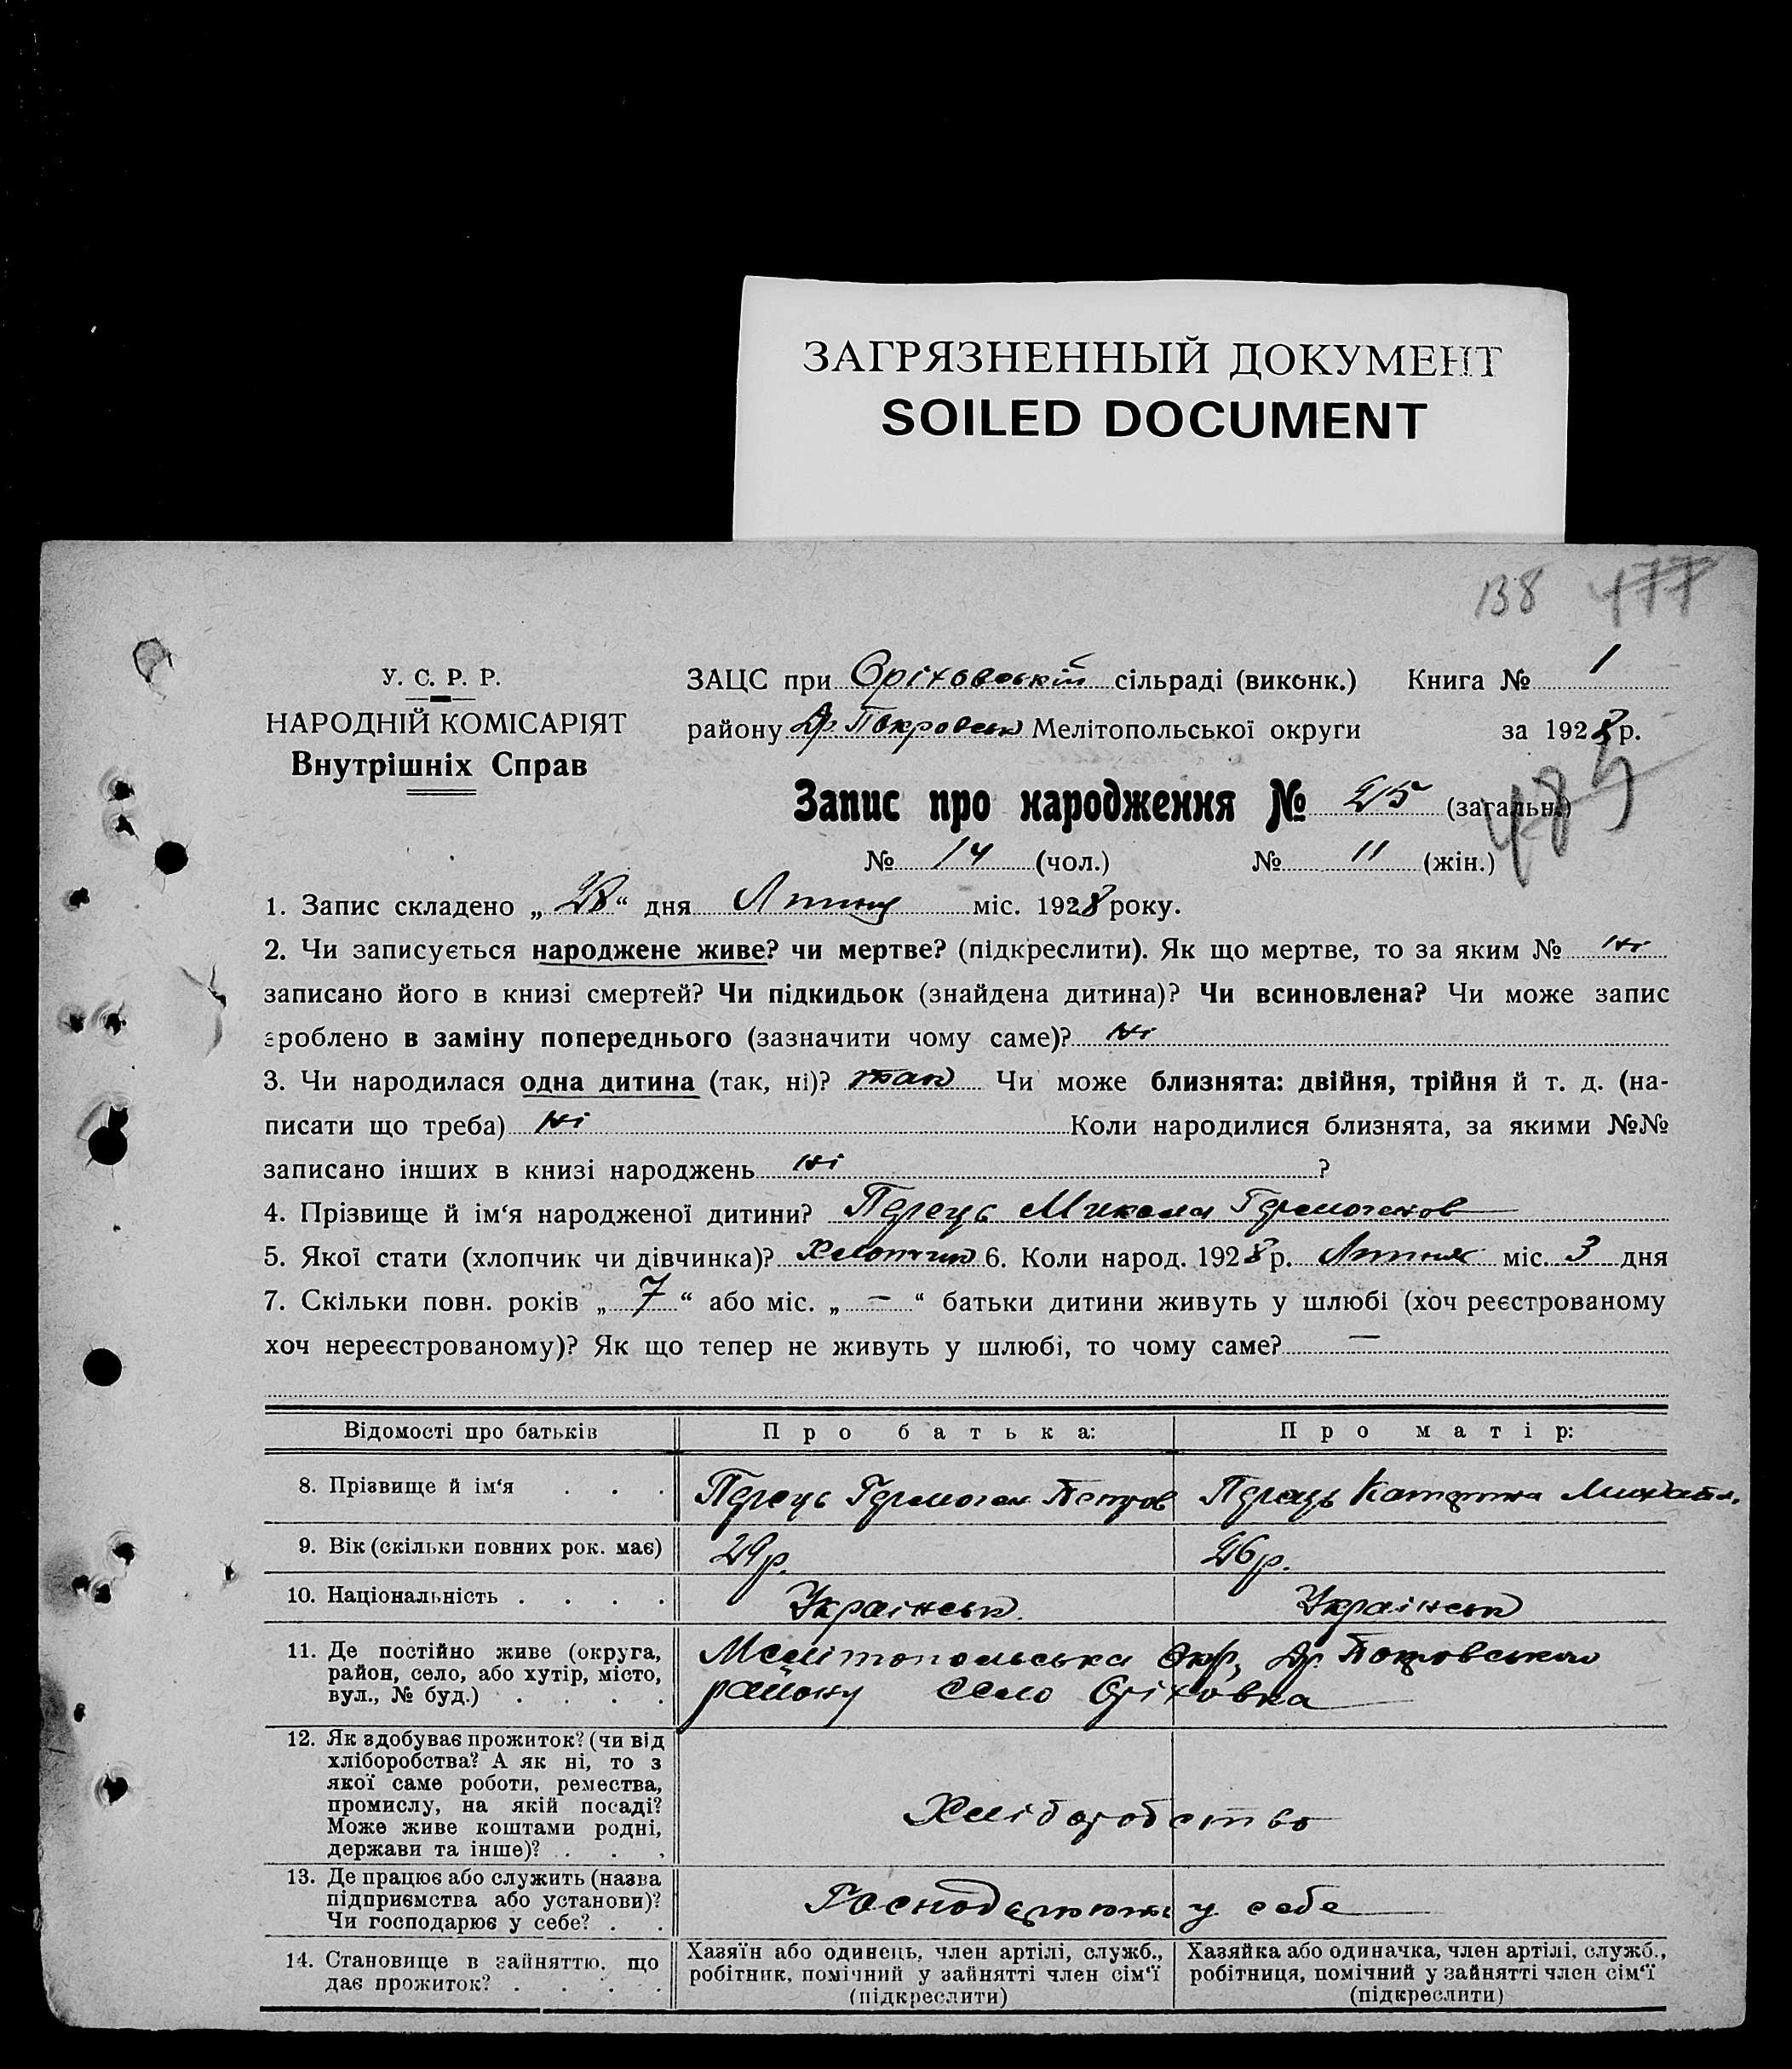 ЗАГРЯЗНЕННЫЙ ДОКУМЕНТ
SOILED DOCUMENT
138 477
У. С. Р. Р.
НАРОДНІЙ КОМІСАРІЯТ
Внутрішніх Справ
ЗАЦС при Оріховській сільраді (виконк.) Книга № 1
району Др. Покровськ Мелітопольської округи за 1928 р.
Запис про народження № 25 (загальн.)
№ 14 (чол.) № 11 (жін.)
1. Запис складено „28“ дня Липня міс. 1928 року.
2. Чи записується народжене живе? чи мертве? (підкреслити). Як що мертве, то за яким № ні
записано його в книзі смертей? Чи підкидьок (знайдена дитина)? Чи всиновлена? Чи може запис
зроблено в заміну попереднього (зазначити чому саме)? ні
3. Чи народилася одна дитина (так, ні)? так Чи може близнята: двійня, трійня й т. д. (на-
писати що треба) ні Коли народилися близнята, за якими №№
записано інших в книзі народжень ні ?
4. Прізвище й ім‘я народженої дитини? Перець Микола Гермогенов
5. Якої стати (хлопчик чи дівчинка)? Хлопчик 6. Коли народ. 1928 р. Липня міс. 3 дня
7. Скільки повн. років „7“ або міс. „—“ батьки дитини живуть у шлюбі (хоч реєстрованому
хоч нереєстрованому)? Як що тепер не живуть у шлюбі, то чому саме? —
Відомості про батьків Про батька: Про матір:
8. Прізвище й ім‘я . . . Перець Гермоген Петров Перець Катерина Михайл.
9. Вік (скільки повних рок. має) 29 р. 26 р.
10. Національність . . . . Українськ. Українськ
11. Де постійно живе (округа,
район, село, або хутір, місто,
вул., № буд.) . . . .
Мелітопольська Окр, Др. Покровського
району село Оріховка
12. Як здобуває прожиток? (чи від
хліборобства? А як ні, то з
якої саме роботи, ремества,
промислу, на якій посаді?
Може живе коштами родні,
держави та інше)? . . .
Хліборобство
13. Де працює або служить (назва
підприємства або установи)?
Чи господарює у себе? . .
Господарюють у себе
14. Становище в зайняттю, що
дає прожиток? . . . .
Хазяїн або одинець, член артілі, служб.,
робітник, помічний у зайнятті член сім‘ї
(підкреслити)
Хазяйка або одиначка, член артілі, служб.,
робітниця, помічний у зайнятті член сім‘ї
(підкреслити)